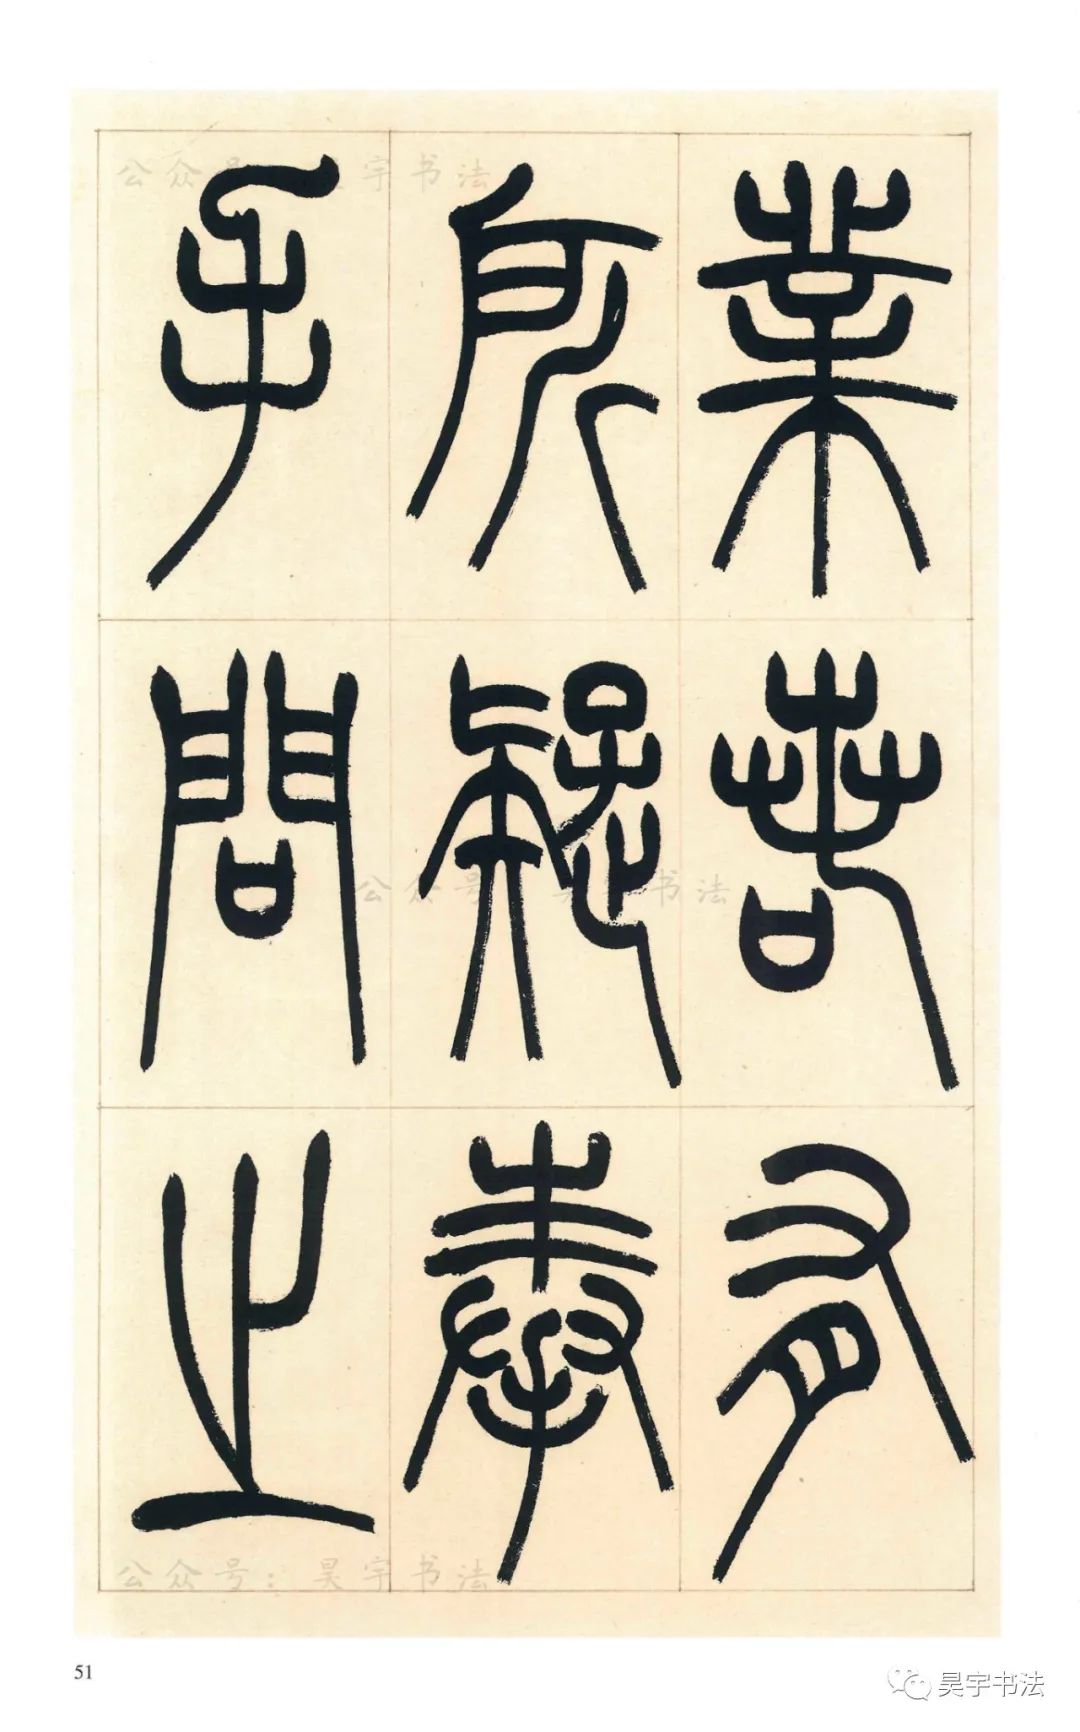 業若有
所疑奉
手問之
公众号：昊宇书法
公众号：昊宇书法
公众号：昊宇书法
51
昊宇书法